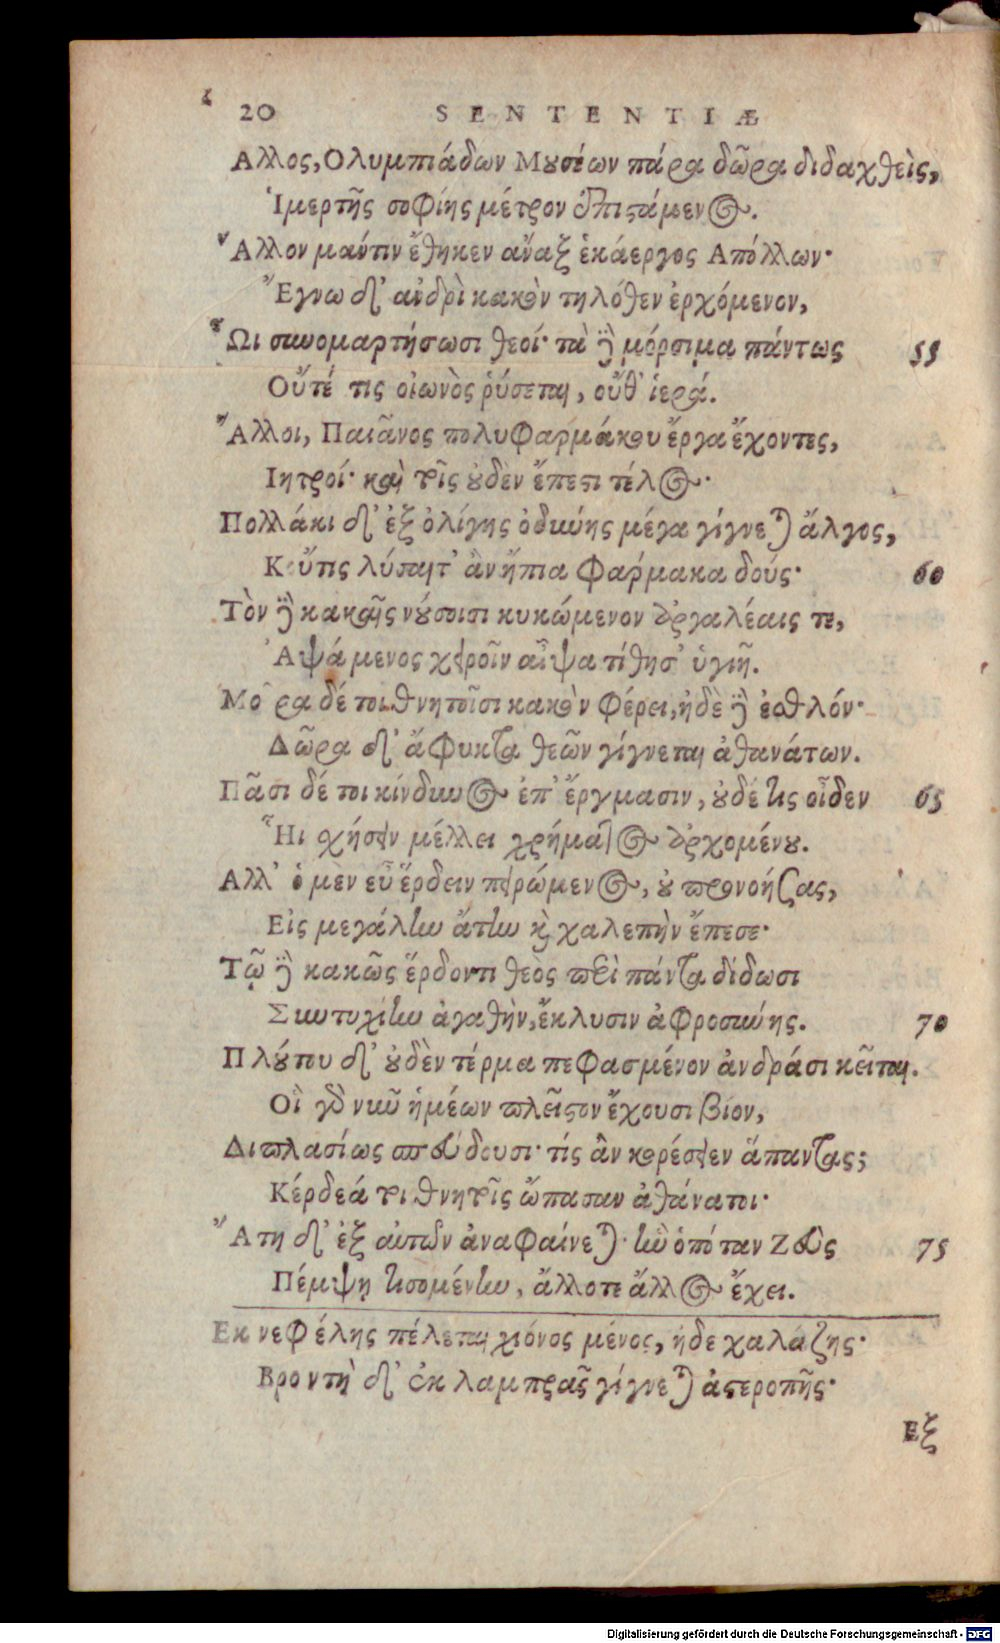 20 SENTENTIÆ
Αλλος, Ολυμπιάδων Μουσέων πάρα δῶρα διδαχθεὶς,
Ἱμερτῆς σοφίης μέτρον ἐπιστάμενος.
Ἄλλον μάντιν ἔθηκεν ἄναξ ἑκάεργος Απόλλων·
Ἔγνω δ' ἀνδρὶ κακὸν τηλόθεν ἐρχόμενον,
Ὧι συνομαρτήσωσι θεοί· τὰ ἢ μόρσιμα πάντως 55
Οὔτέ τις οἰωνὸς ῥύσεται, οὔθ' ἱερά.
Ἄλλοι, Παιᾶνος πολυφαρμάκου ἔργα ἔχοντες,
Ιητροί· καὶ τοῖς οὐδὲν ἔπεστι τέλος·
Πολλάκι δ' ἐξ ὀλίγης ὀδύνης μέγα γίγνεται ἄλγος,
Κοὔτις λύσαιτ' ἂν ἤπια φάρμακα δούς· 60
Τὸν ἢ κακαῖς νούσοισι κυκώμενον ἀργαλέαις τε,
Ἁψάμενος χεροῖν αἶψα τίθησ' ὑγιῆ.
Μοῖρα δέ τοι θνητοῖσι κακὸν φέρει, ἠδὲ ἢ ἐσθλόν·
Δῶρα δ' ἄφυκτα θεῶν γίγνεται ἀθανάτων.
Πᾶσι δέ τοι κίνδυνος ἐπ' ἔργμασιν, οὐδέ τις οἶδεν 65
Ἧι σχήσειν μέλλει χρήματος ἀρχομένου.
Αλλ' ὁ μὲν εὖ ἔρδειν πειρώμενος, οὐ προνοήσας,
Εἰς μεγάλην ἄτην καὶ χαλεπὴν ἔπεσε·
Τῷ ἢ κακῶς ἔρδοντι θεὸς περὶ πάντα δίδωσι
Συντυχίην ἀγαθὴν, ἔκλυσιν ἀφροσύνης. 70
Πλούτου δ' οὐδὲν τέρμα πεφασμένον ἀνδράσι κεῖται.
Οἳ γὰρ νῦν ἡμέων πλεῖστον ἔχουσι βίον,
Διπλασίως σπεύδουσι· τίς ἂν κορέσειεν ἅπαντας;
Κέρδεά τοι θνητοῖς ὤπασαν ἀθάνατοι·
Ἄτη δ' ἐξ αὐτῶν ἀναφαίνεται· ἣν ὁπόταν Ζεὺς 75
Πέμψῃ τισομένην, ἄλλοτε ἄλλος ἔχει.
Εκ νεφέλης πέλεται χιόνος μένος, ἠδὲ χαλάζης·
Βροντὴ δ' ἐκ λαμπρᾶς γίγνεται ἀστεροπῆς·
Εξ
Digitalisierung gefördert durch die Deutsche Forschungsgemeinschaft - DFG